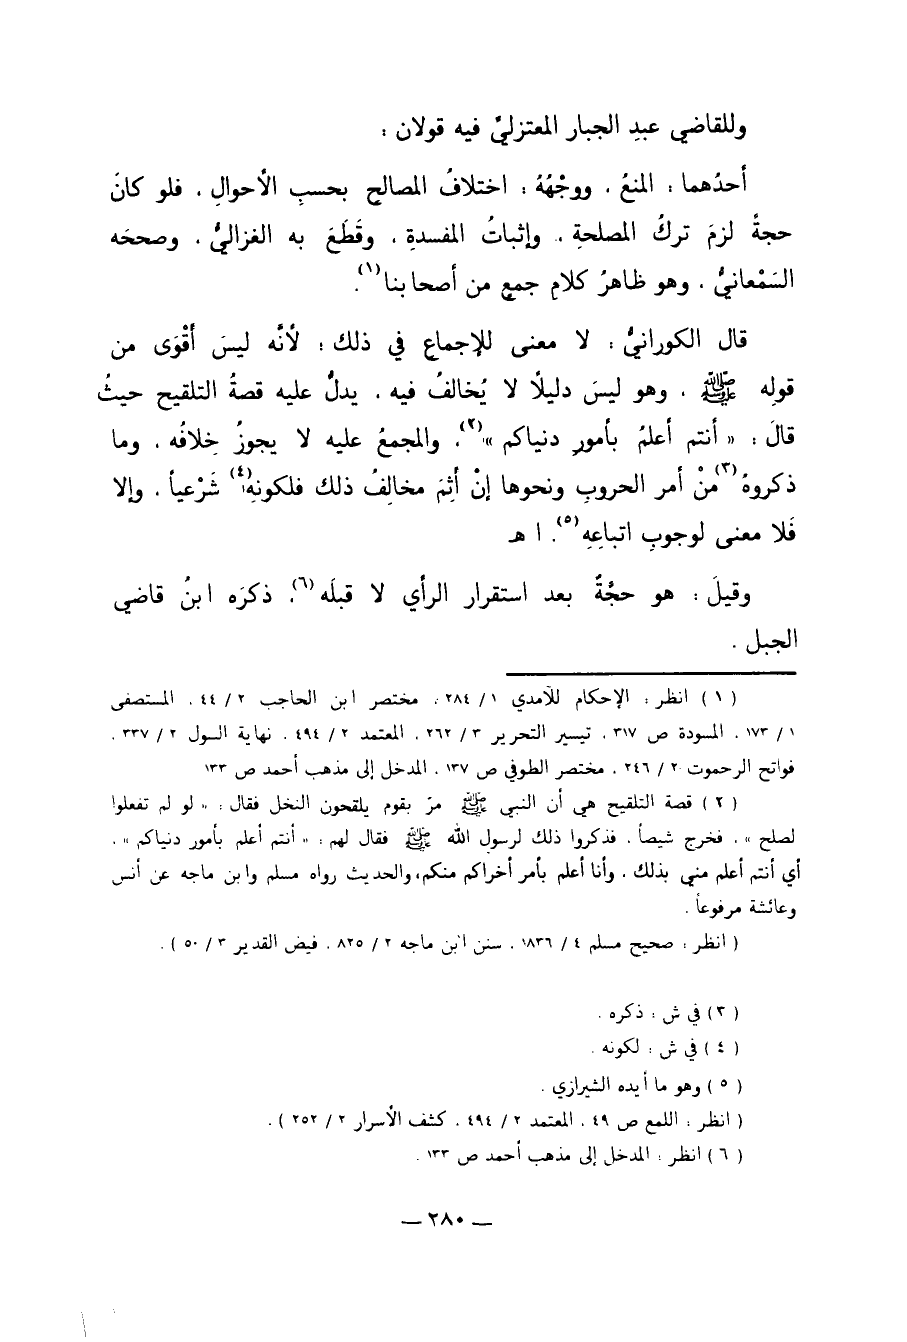 وللقاضي عبدِ الجبار المعتزليِّ فيه قولان :
أحدُهما : المنعُ ، ووجْهُهُ : اختلافُ المصالحِ بحسبِ الأحوالِ ، فلو كانَ
حجةً لزمَ تركُ المصلحةِ ، وإثباتُ المفسدةِ ، وقَطَعَ به الغزاليُّ ، وصححَه
السَمْعانيُّ ، وهو ظاهرُ كلامِ جمعٍ من أصحابنا(١).
قال الكورانيُّ : لا معنى للإجماعِ في ذلك ؛ لأنَّه ليسَ أقْوَى من
قولِه ﷺ ، وهو ليسَ دليلًا لا يُخالفُ فيه ، يدلُّ عليه قصةُ التلقيحِ حيثُ
قالَ : « أنتم أعلمُ بأمورِ دنياكم »(٢)، والمجمعُ عليه لا يجوزُ خِلافُه ، وما
ذكروهُ(٣)منْ أمر الحروبِ ونحوها إنْ أثِمَ مخالِفُ ذلك فلكونهِ(٤) شَرْعياً ، وإلا
فَلا معنى لوجوبِ اتباعِهِ(٥). ا هـ
وقيلَ : هو حجَّةٌ بعد استقرار الرأي لا قبلَه(٦)، ذكرَه ابنُ قاضي
الجبل .
( ١ ) انظر : الإحكام للآمدي ١ / ٢٨٤ ، مختصر ابن الحاجب ٢ / ٤٤ ، المستصفى
١ / ١٧٣ ، المسودة ص ٣١٧ ، تيسير التحرير ٣ / ٢٦٢ ، المعتمد ٢ / ٤٩٤ ، نهاية السول ٢ / ٣٣٧ ،
فواتح الرحموت ٢ / ٢٤٦ ، مختصر الطوفي ص ١٣٧ ، المدخل إلى مذهب أحمد ص ١٣٣
( ٢ ) قصة التلقيح هي أن النبي ﷺ مرّ بقوم يلقحون النخل فقال : « لو لم تفعلوا
لصلح » ، فخرج شيصاً ، فذكروا ذلك لرسول الله ﷺ فقال لهم : « أنتم أعلم بأمور دنياكم » ،
أي أنتم أعلم مني بذلك ، وأنا أعلم بأمر أخراكم منكم، والحديث رواه مسلم وابن ماجه عن أنس
وعائشة مرفوعاً .
( انظر : صحيح مسلم ٤ / ١٨٣٦ ، سنن ابن ماجه ٢ / ٨٢٥ ، فيض القدير ٣ / ٥٠ ) .
( ٣ ) في ش : ذكره .
( ٤ ) في ش : لكونه .
( ٥ ) وهو ما أيده الشيرازي .
( انظر : اللمع ص ٤٩ ، المعتمد ٢ / ٤٩٤ ، كشف الأسرار ٢ / ٢٥٢ ) .
( ٦ ) انظر : المدخل إلى مذهب أحمد ص ١٣٣ .
— ٢٨٠ —